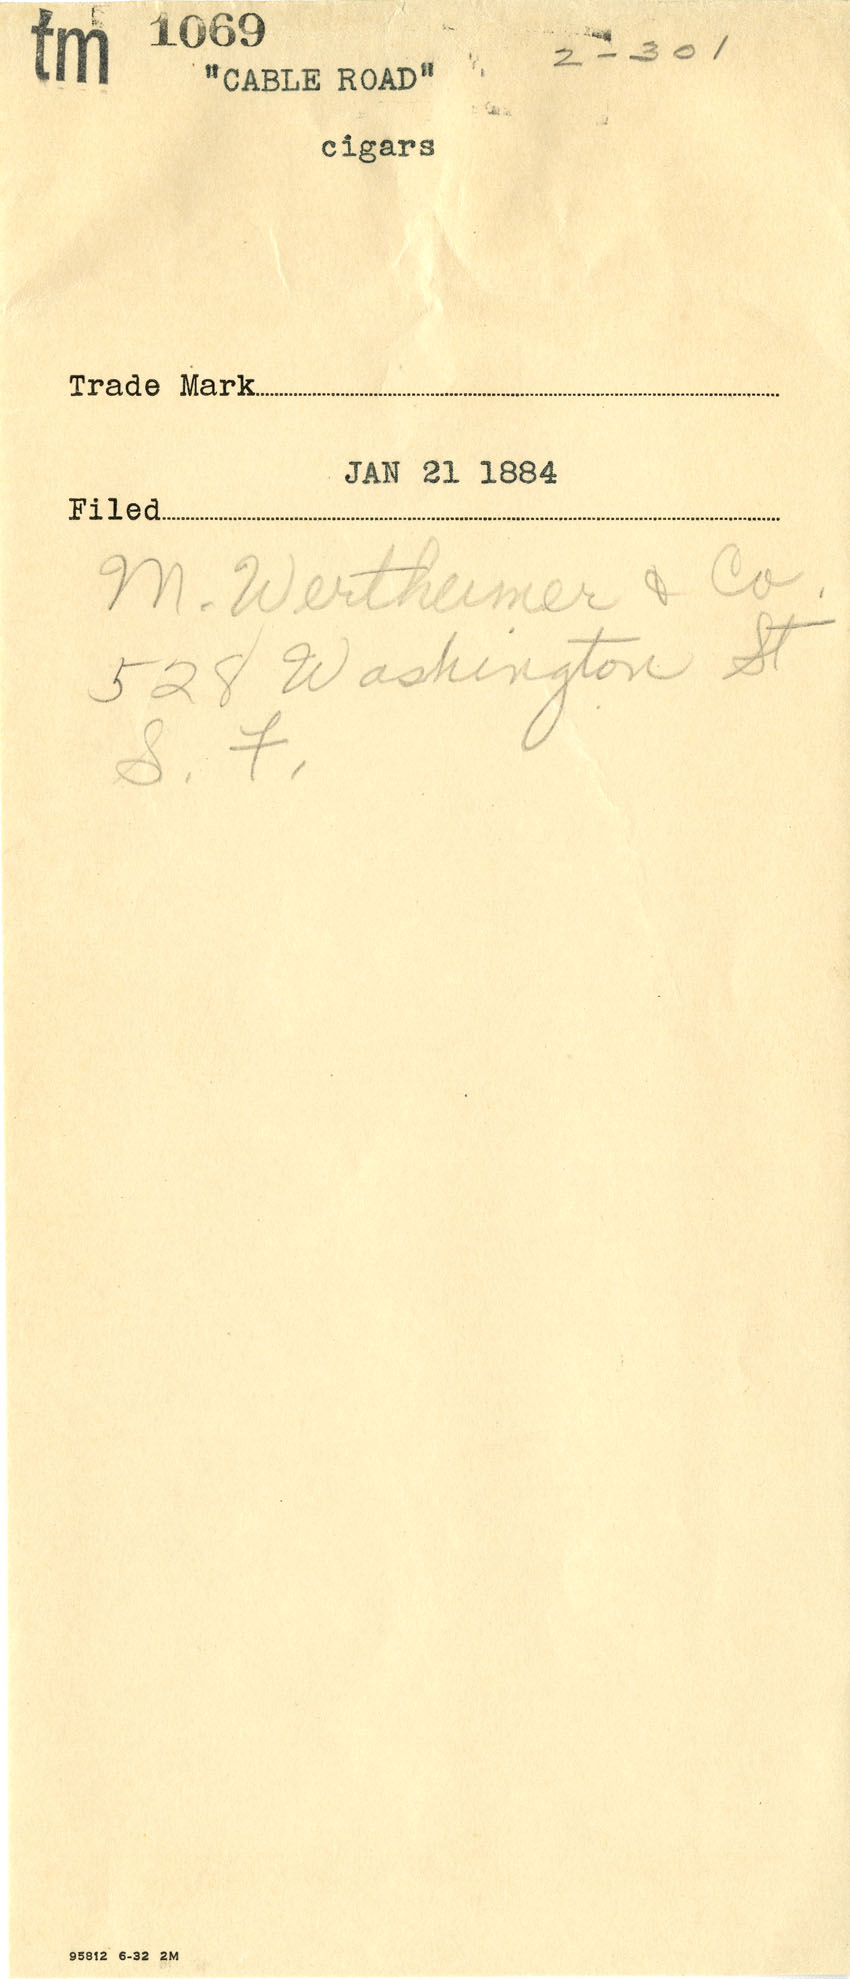 tm 1069 2-301
"CABLE ROAD"
cigars
Trade Mark
JAN 21 1884
Filed
M. Wertheimer & Co.
528 Washington St
S. F.
95812 6-32 2M